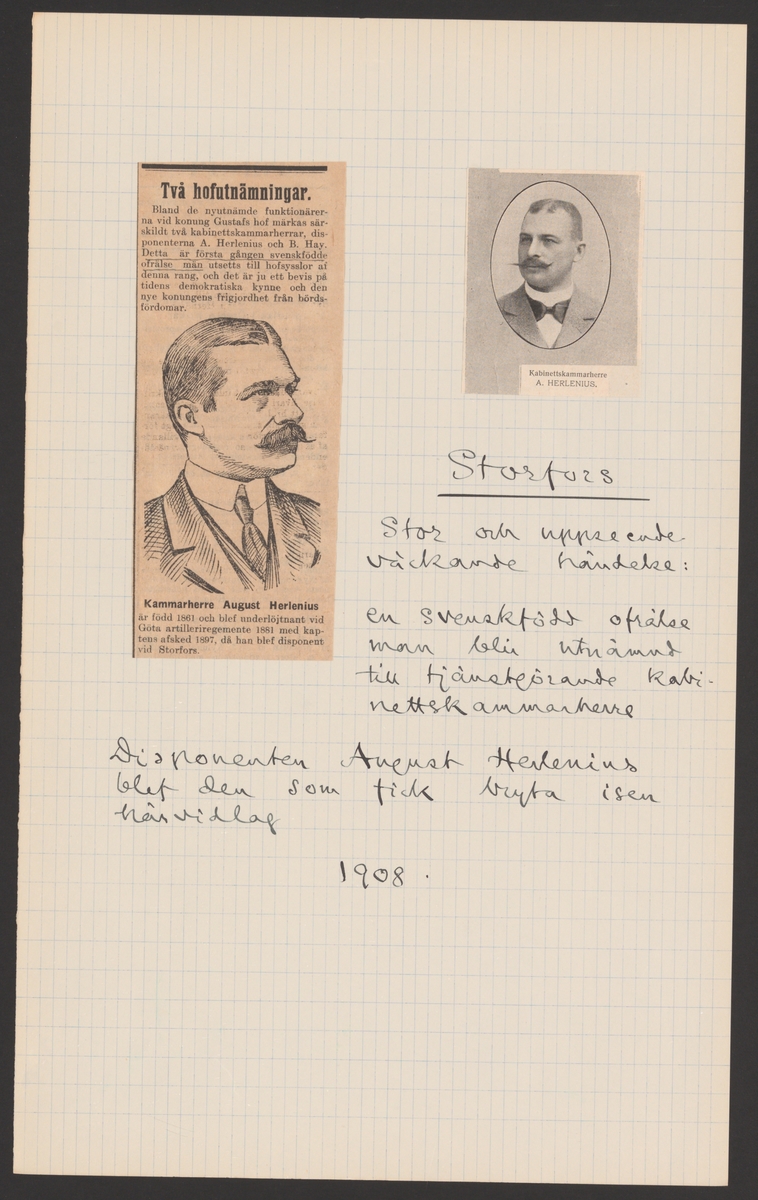 Två hofutnämningar.
Bland de nyutnämde funktionärer-
na vid konung Gustafs hof märkas sär-
skildt två kabinettskammarherrar, dis-
ponenterna A. Herlenius och B. Hay.
Detta är första gången svenskfödde
ofrälse män utsetts till hofsysslor af
denna rang, och det är ju ett bevis på
tidens demokratiska kynne och den
nye konungens frigjordhet från börds-
fördomar.
Kammarherre August Herlenius
är född 1861 och blef underlöjtnant vid
Göta artilleriregemente 1881 med kap-
tens afsked 1897, då han blef disponent
vid Storfors.
Kabinettskammarherre
A. HERLENIUS.
Storfors
Stor och uppseende-
väckande händelse:
en svenskfödd ofrälse
man blir utnämnd
till tjänstgörande kabi-
nettskammarherre
Disponenten August Herlenius
blef den som fick bryta isen
härvidlag
1908.